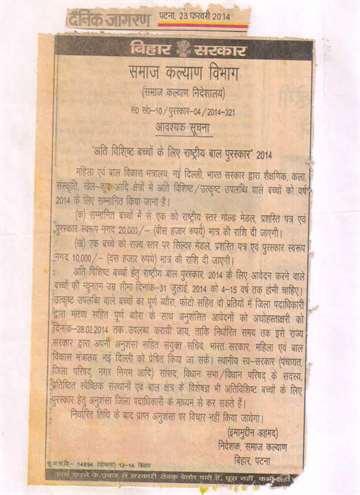 दैनिक जागरण
पटना, 23 फरवरी 2014
बिहार सरकार
समाज कल्याण विभाग
(समाज कल्याण निदेशालय)
स0 सं0-10/पुरस्कार-04/2014-321
आवश्यक सूचना
"अति विशिष्ट बच्चों के लिए राष्ट्रीय बाल पुरस्कार" 2014
महिला एवं बाल विकास मंत्रालय, नई दिल्ली, भारत सरकार द्वारा शैक्षणिक, कला,
संस्कृति, खेल-कूद आदि क्षेत्रों में अति विशिष्ट/उत्कृष्ट उपलब्धि वाले बच्चों को वर्ष
2014 के लिए सम्मानित किया जाना है।
(क) सम्मानित बच्चों में से एक को राष्ट्रीय स्तर गोल्ड मेडल, प्रशस्ति पत्र एवं
पुरस्कार स्वरूप नगद 20,000/- (बीस हजार रूपये) मात्र की राशि दी जाएगी।
(ख) एक बच्चे को राज्य स्तर पर सिल्वर मेडल, प्रशस्ति पत्र एवं पुरस्कार स्वरूप
नगद 10,000/- (दस हजार रूपये) मात्र की राशि दी जाएगी।
अति विशिष्ट बच्चों हेतु राष्ट्रीय बाल पुरस्कार, 2014 के लिए आवेदन करने वाले
बच्चों की न्यूनतम उम्र सीमा दिनांक-31 जुलाई, 2014 को 4-15 वर्ष तक होनी चाहिए।
उत्कृष्ट उपलब्धि वाले बच्चों का पूर्ण ब्योरा, फोटो सहित दो प्रतियों में जिला पदाधिकारी
द्वारा भरण सहित पूर्ण ब्योरा के साथ अनुशंसित आवेदनों को अधोहस्ताक्षरी को
दिनांक-28.02.2014 तक उपलब्ध करायी जाय, ताकि निर्धारित समय तक इसे राज्य
सरकार द्वारा अपनी अनुशंसा सहित संयुक्त सचिव, भारत सरकार, महिला एवं बाल
विकास मंत्रालय, नई दिल्ली को प्रेषित किया जा सके। स्थानीय स्व-सरकार (पंचायत,
जिला परिषद्, नगर निगम आदि) सांसद, विधान सभा/विधान परिषद के सदस्य,
प्रतिष्ठित स्वैच्छिक संस्थानों एवं बाल क्षेत्र के विशेषज्ञ भी अतिविशिष्ट बच्चों के लिए
पुरस्कार हेतु अनुशंसा जिला पदाधिकारी के माध्यम से कर सकते हैं।
निर्धारित तिथि के बाद प्राप्त अनुशंसा पर विचार नहीं किया जायेगा।
(इमामुद्दीन अहमद)
निदेशक, समाज कल्याण
बिहार, पटना
14894 13-14